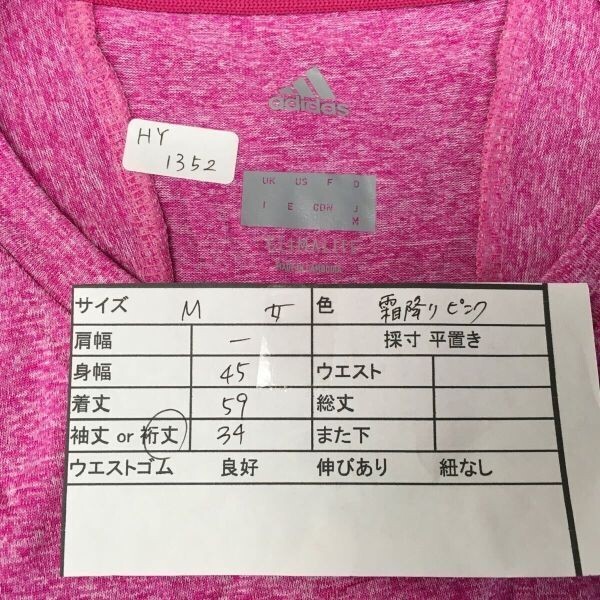 adidas
HY
1352
UK US F D
I E CDN J
M
CLIMALITE
MADE IN CAMBODIA
サイズ M 女 色 霜降りピンク
肩幅 — 採寸 平置き
身幅 45 ウエスト
着丈 59 総丈
袖丈 or 裄丈 34 また下
ウエストゴム 良好 伸びあり 紐なし